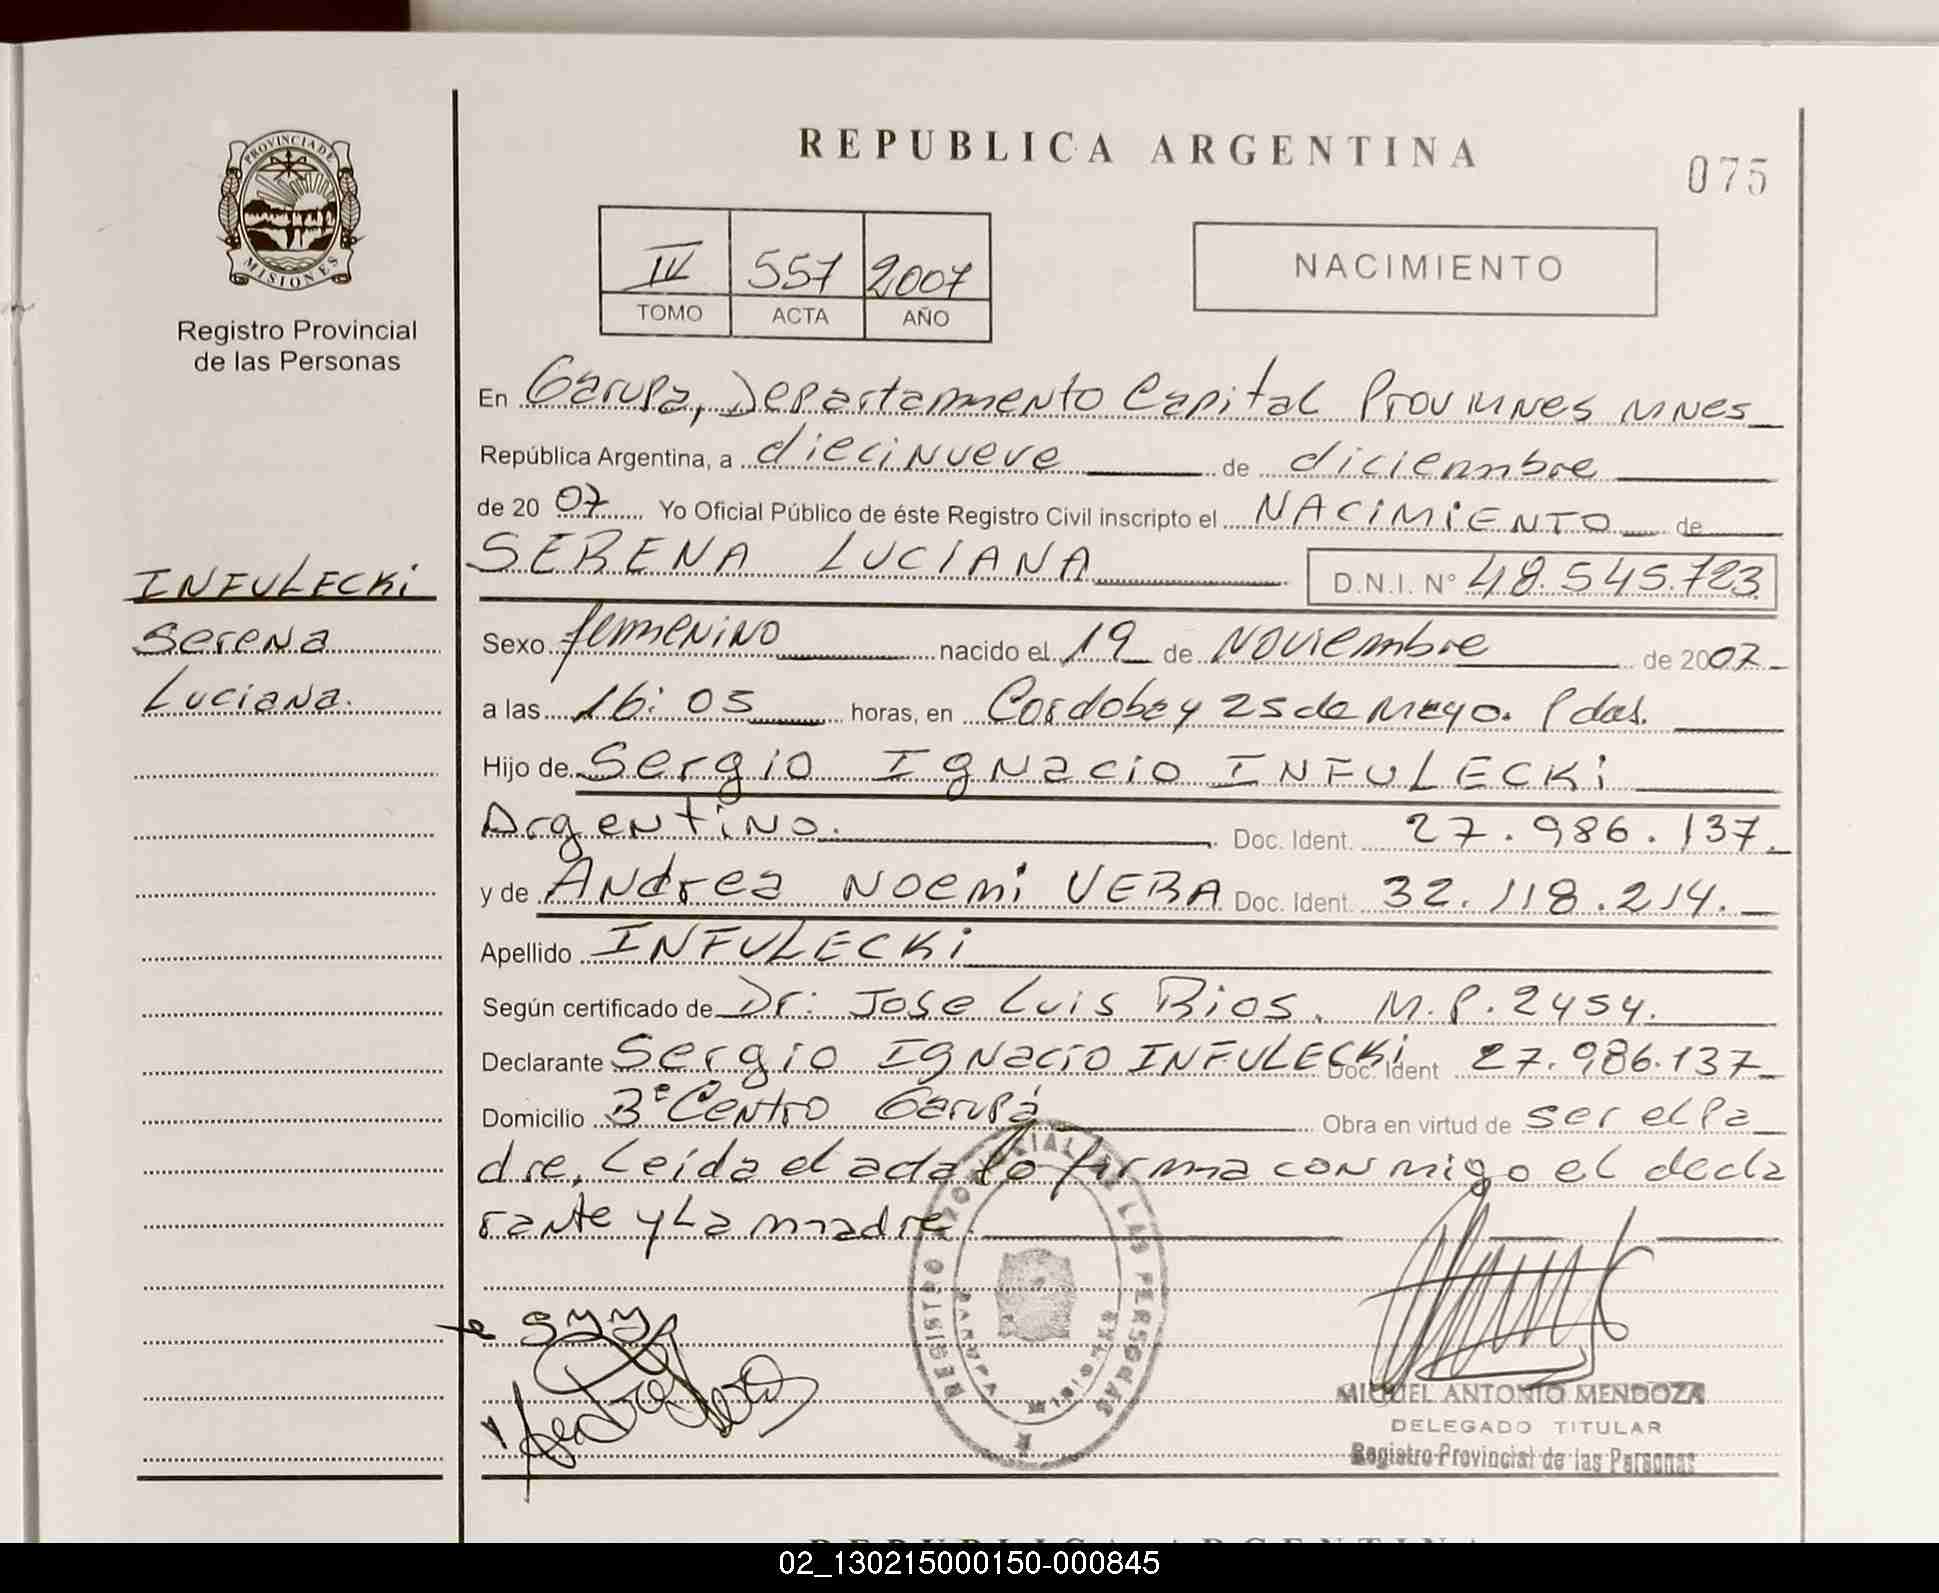 REPUBLICA ARGENTINA
075
PROVINCIA DE
MISIONES
Registro Provincial
de las Personas
IV 557 2007
TOMO ACTA AÑO
NACIMIENTO
En Garupa, Departamento Capital Prov Mnes Mnes
República Argentina, a diecinueve de diciembre
de 2007 Yo Oficial Público de éste Registro Civil inscripto el NACIMIENTO de
SERENA LUCIANA D.N.I. N° 48.545.723
INFULECKI
Serena
Luciana.
Sexo femenino nacido el 19 de Noviembre de 2007
a las 16:05 horas, en Cordoba y 25 de Mayo. Pdas.
Hijo de Sergio Ignacio INFULECKI
Argentino. Doc. Ident. 27.986.137.
y de Andrea Noemi VERA Doc. Ident. 32.118.214.
Apellido INFULECKI
Según certificado de Dr: Jose Luis Rios. M.P. 2454.
Declarante Sergio Ignacio INFULECKI Doc. Ident 27.986.137
Domicilio B° Centro Garupá Obra en virtud de ser el Pa
dre. Leída el acta lo firma conmigo el decla
rante y La madre.
REGISTRO PROVINCIAL DE LAS PERSONAS
GARUPA MISIONES
MIGUEL ANTONIO MENDOZA
DELEGADO TITULAR
Registro Provincial de las Personas
REPUBLICA ARGENTINA
02_130215000150-000845